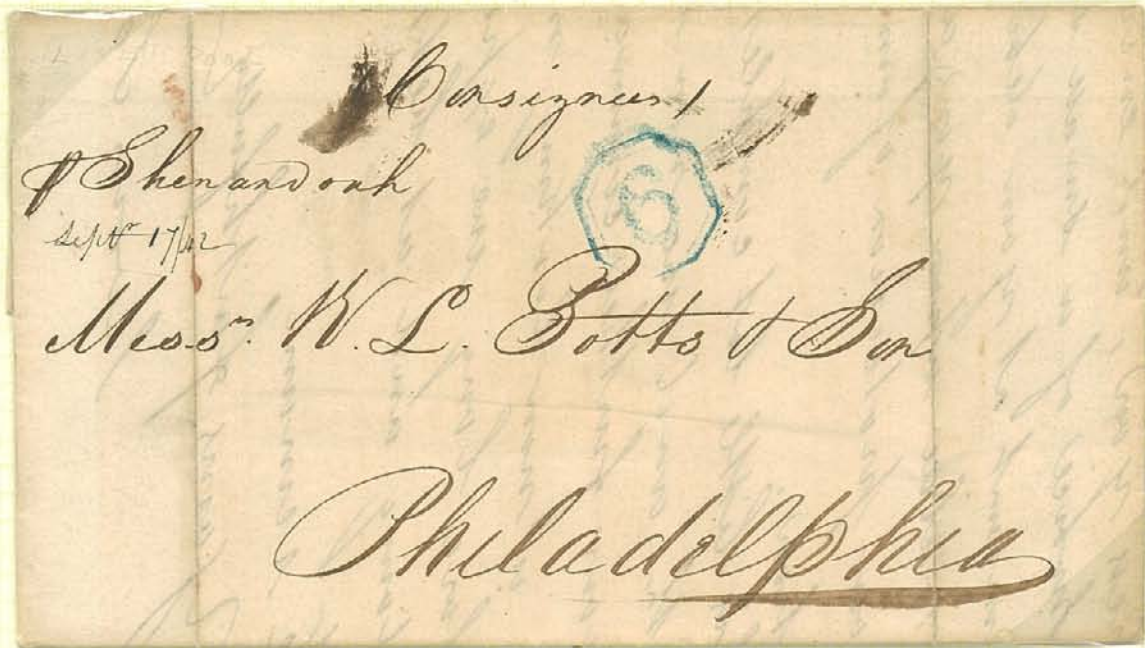 Consignees /
⅌ Shenandoah
Septr 17/42
6
Messrs. W. L. Potts & Son
Philadelphia